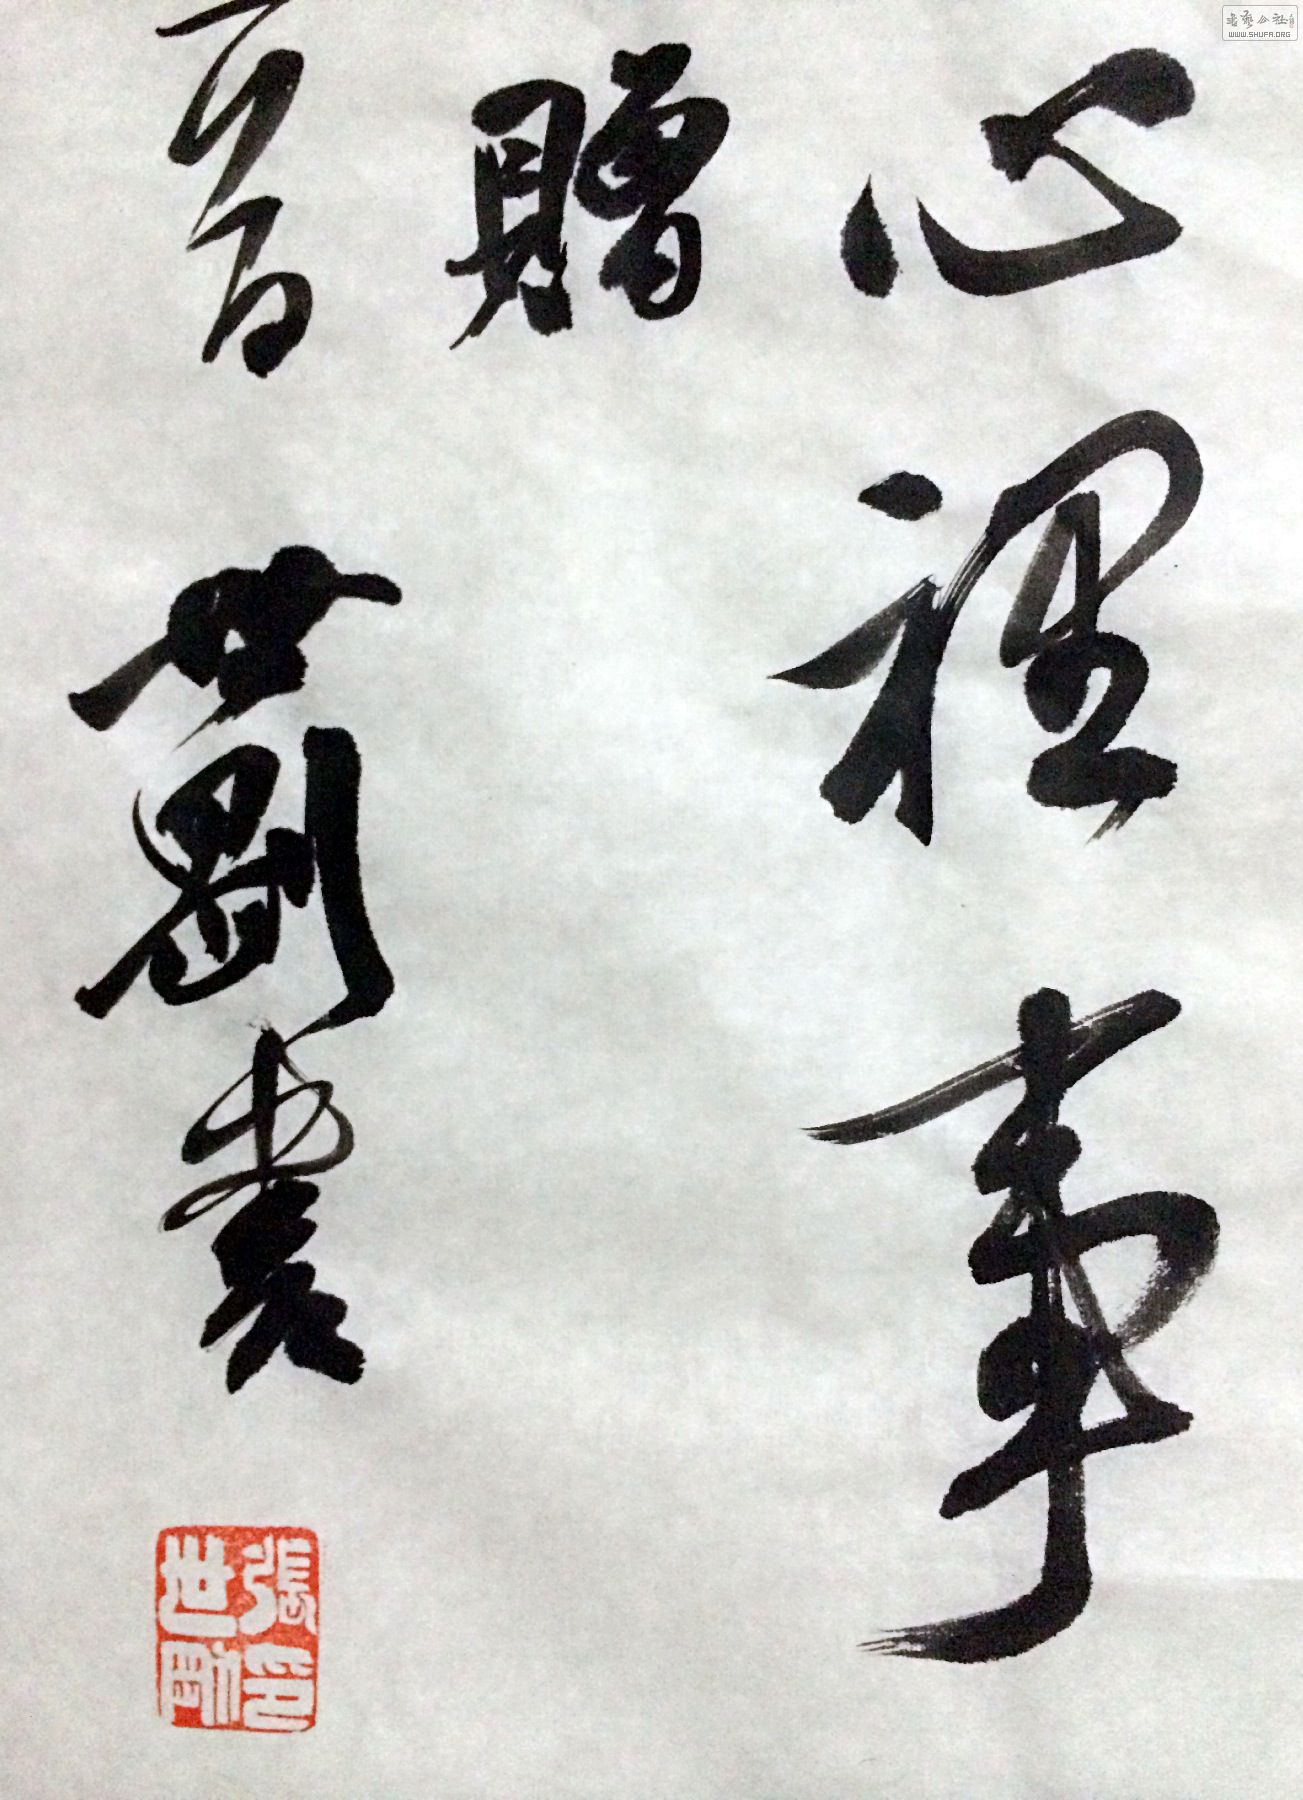 心裡事
贈
世剛書
張印
世剛
書藝公社
WWW.SHUFA.ORG